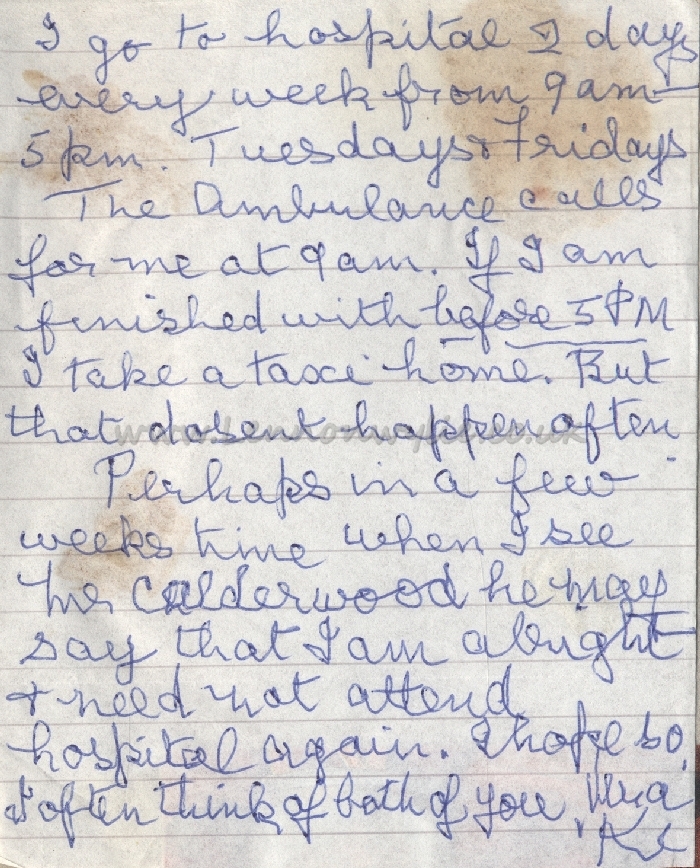 I go to hospital 2 days
every week from 9am –
5pm. Tuesdays + Fridays
The Ambulance calls
for me at 9am. If I am
finished with before 5PM
I take a taxi home. But
that dosent happen often
Perhaps in a few
weeks time when I see
Mr Calderwood he may
say that I am alright
+ need not attend
hospital again. I hope so.
I often think of both of you